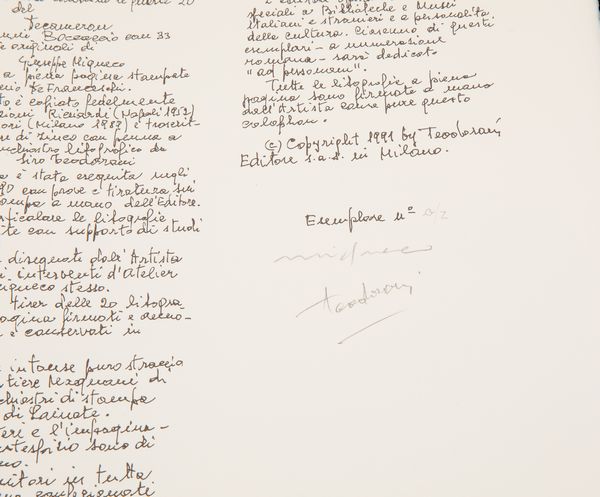 del
Decameron
Boccaccio con 33
originali di
Giuseppe Migneco
a piena pagina stampate
De Franceschi.
è copiato fedelmente
Ricciardi (Napoli 1953)
(Milano 1989) e trascrit-
di zinco con penna a
inchiostro litografico da
Siro Teodorani
è stata eseguita negli
90 con prove e tiratura sui
a mano dell'Editore.
le litografie
con supporto di studi
disegnate dall'Artista
interventi d'atelier
Migneco stesso.
tiser delle 20 litogra-
pagina firmati e
e conservati in
intonse puro straccio
Magnani di
inchiostri di stampa
di Lainate.
e l'impagina-
sono di
in tutta
speciali a Biblioteche e Musei
italiani e stranieri e a personalità
della cultura. Ciascuno di questi
esemplari - a numerazione
romana - sarà dedicato
"ad personam".
Tutte le litografie a piena
pagina sono firmate a mano
dall'Artista come pure questo
colophon.
(c) Copyright 1991 by Teodorani
Editore s.a.s. in Milano.
Esemplare nº
Migneco
Teodorani